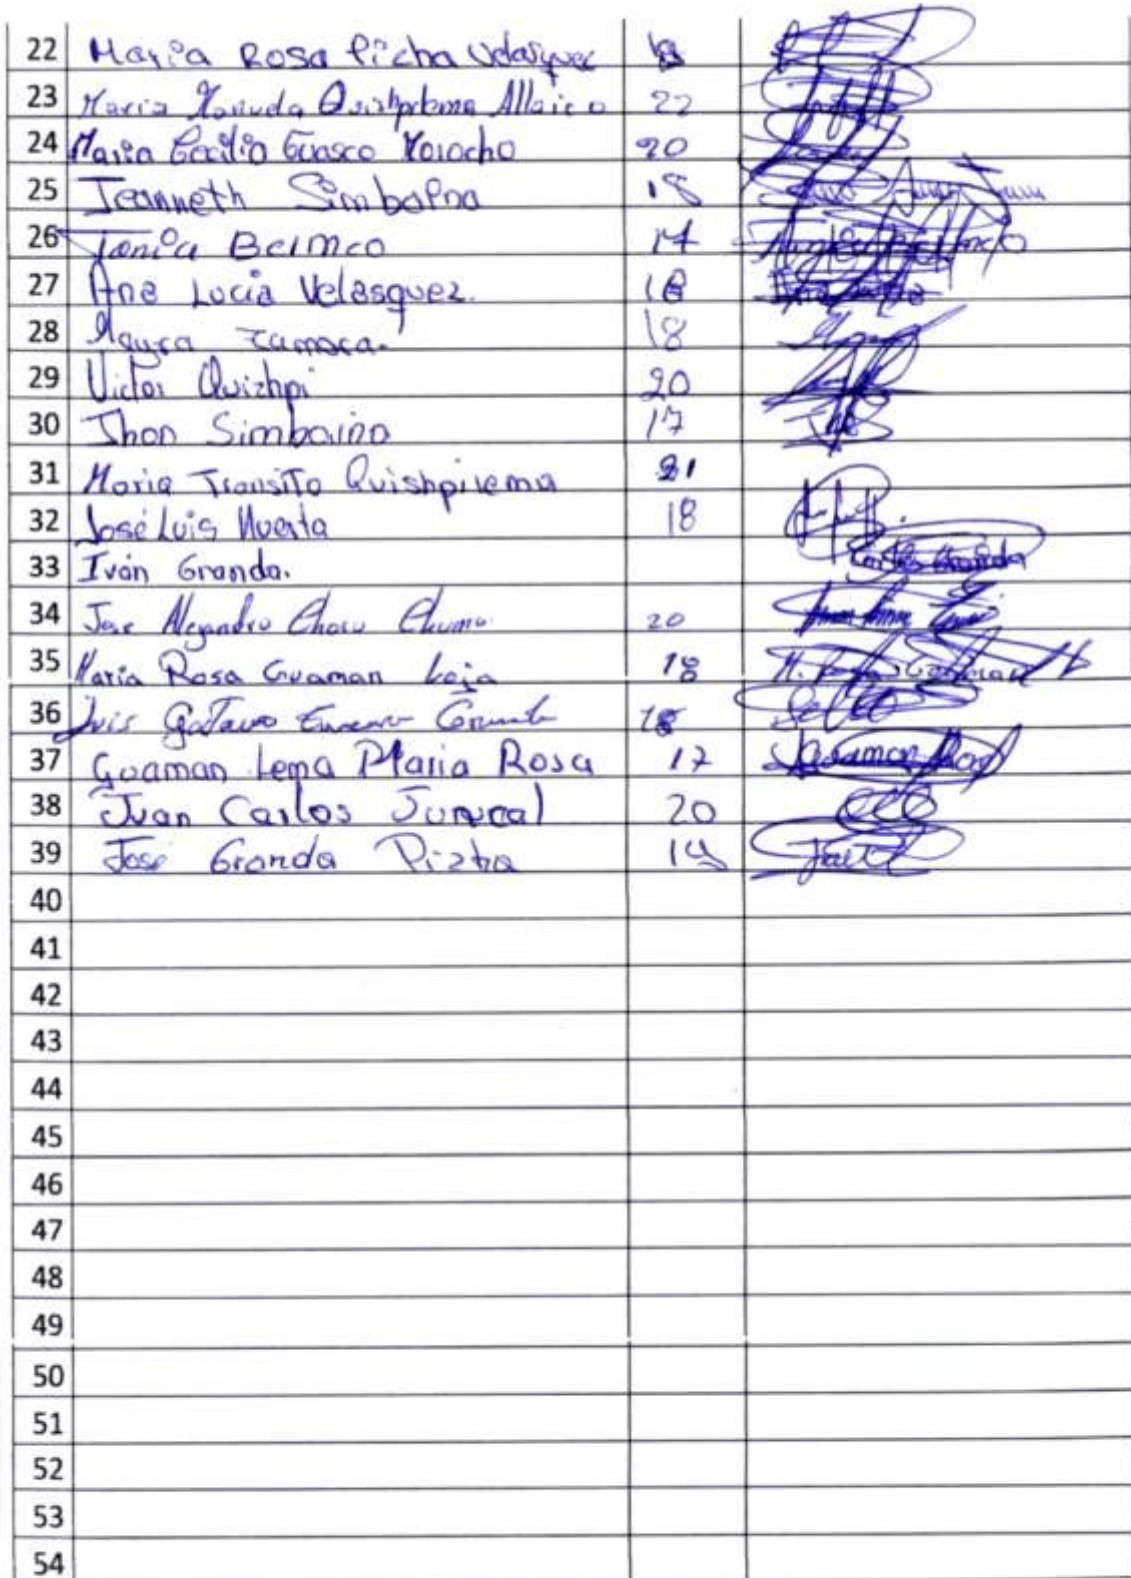 22 Maria Rosa Picha Velasquez
23 Maria Manuela Quishpilema Allaico 22
24 Maria Cecilia Guasco Morocho 20
25 Jeanneth Simbaina 18
26 Tania Bermeo 17
27 Ana Lucia Velasquez. 18
28 Mayra Zamora. 18
29 Victor Quizhpi 20
30 Jhon Simbaina 17
31 Maria Transito Quishpilema 21
32 José Luis Huerta 18
33 Iván Granda.
34 Jose Alejandro 20
35 Maria Rosa Guaman Loja 18
36 Luis Gustavo 18
37 Guaman Lema Maria Rosa 17
38 Juan Carlos 20
39 José Granda Pizha
40
41
42
43
44
45
46
47
48
49
50
51
52
53
54